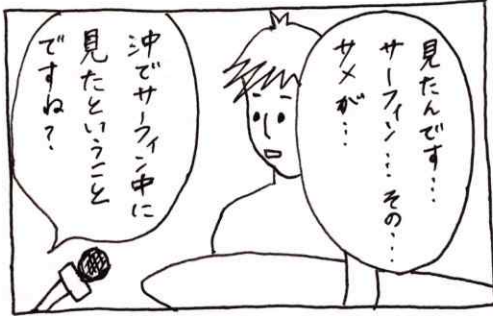 見たんです…
サーフィン…その…
サメが…
沖でサーフィン中に
見たということ
ですね？